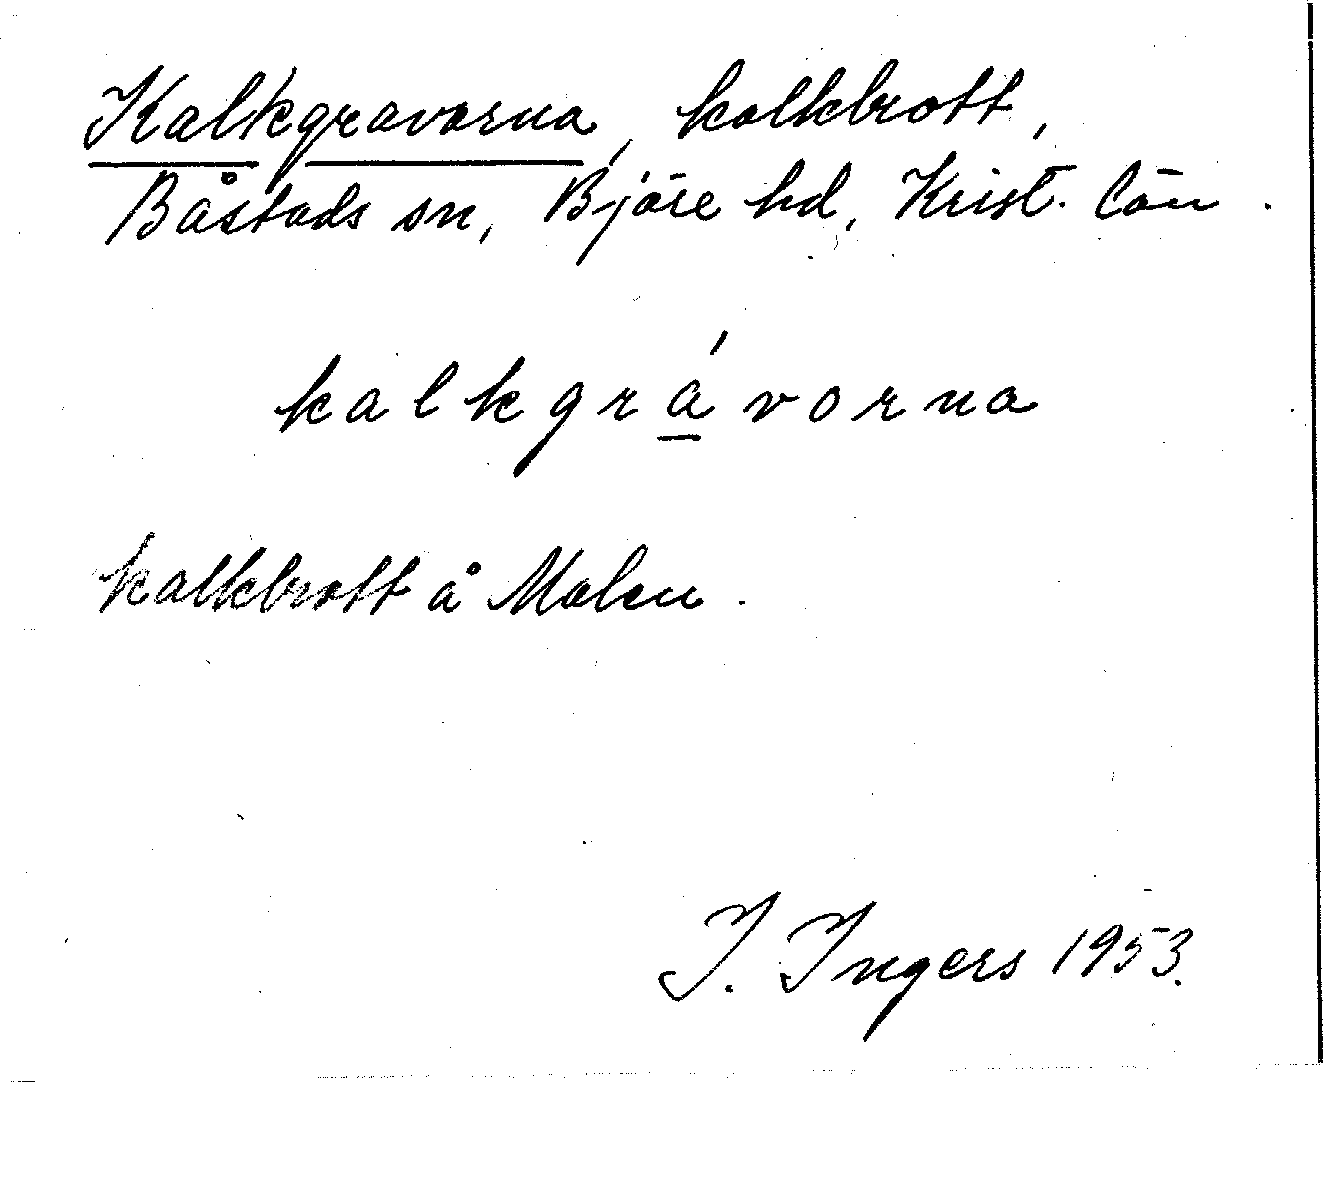 Kalkgravarna, kalkbrott,
Båstads sn, Bjäre hd, Krist. län.
kalkgrá̱vorna
kalkbrott å Malen.
I. Ingers 1953.